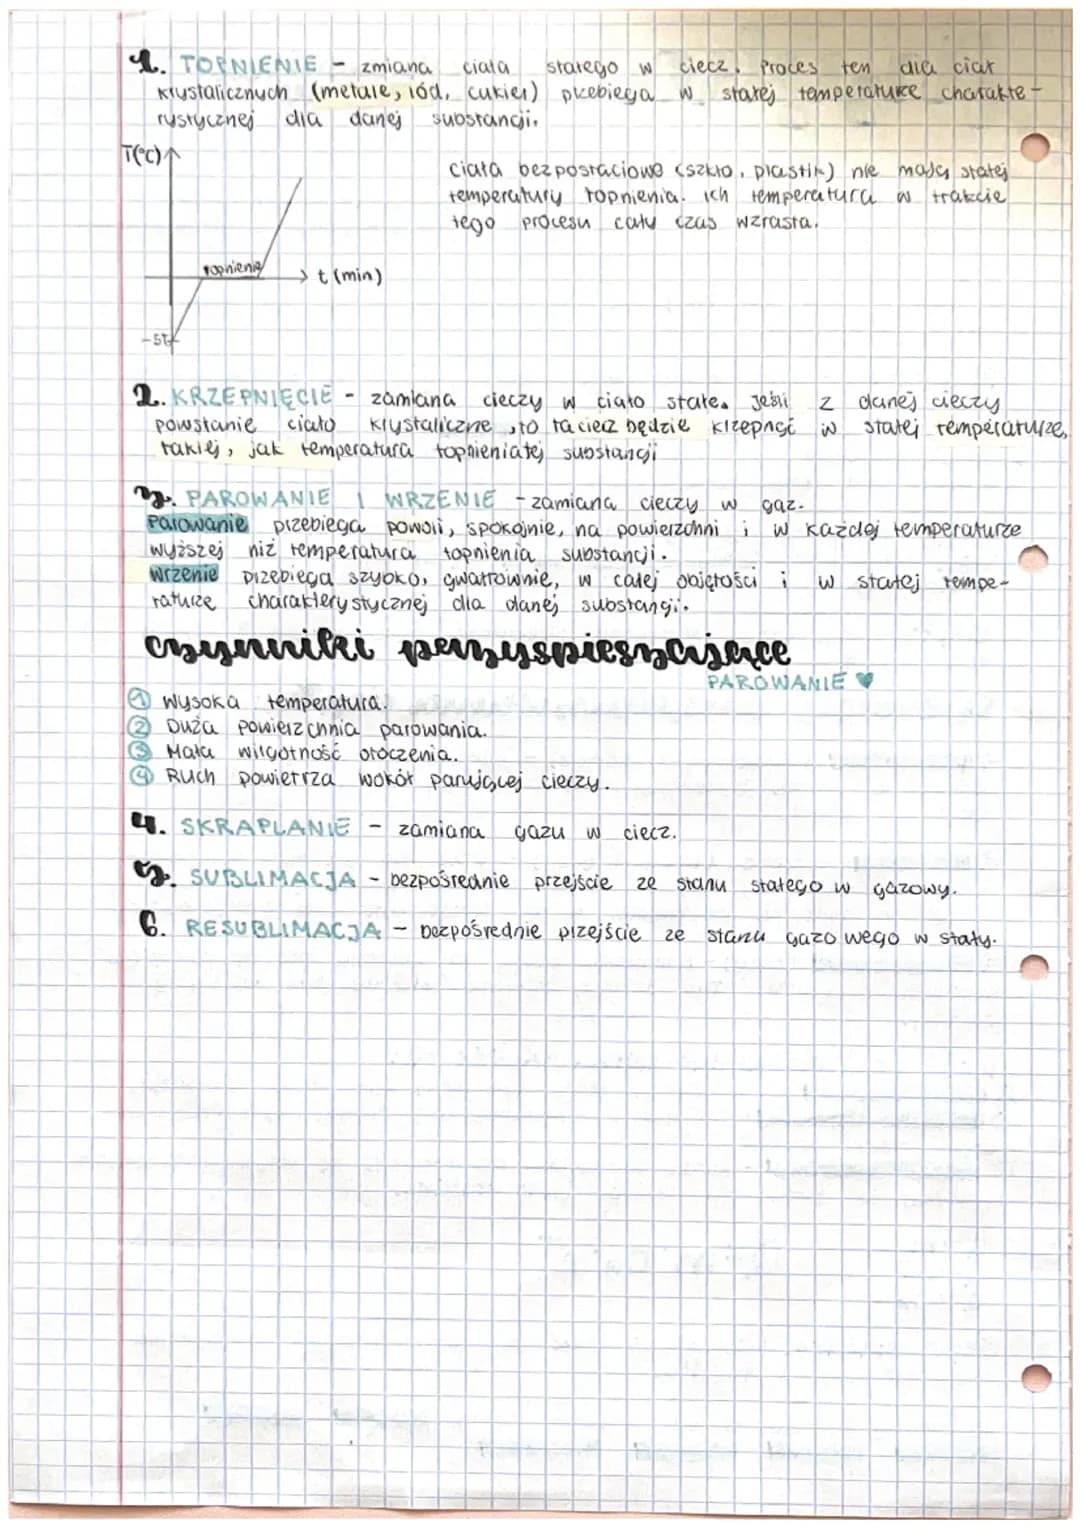 1. TOPNIENIE - zmiana ciała stałego w ciecz. Proces ten dla ciał
krystalicznych (metale, lód, cukier) przebiega w stałej temperaturze charakte-
rystycznej dla danej substancji.
T(°C)
ciała bezpostaciowe (szkło, plastik) nie mają stałej
temperatury topnienia. ich temperatura w trakcie
tego procesu cały czas wzrasta.
topnienie
t (min)
-5
2. KRZEPNIĘCIE - zamiana cieczy w ciało stałe. Jeśli z danej cieczy
powstanie ciało krystaliczne, to ta ciecz będzie krzepnąć w stałej temperaturze,
takiej, jak temperatura topnienia tej substancji
3. PAROWANIE I WRZENIE - zamiana cieczy w gaz.
Parowanie przebiega powoli, spokojnie, na powierzchni i w każdej temperaturze
wyższej niż temperatura topnienia substancji.
Wrzenie przebiega szybko, gwałtownie, w całej objętości i w stałej tempe-
raturze charakterystycznej dla danej substancji.
czynniki przyspieszające
PAROWANIE
1 Wysoka temperatura.
2 Duża powierzchnia parowania.
3 Mała wilgotność otoczenia.
4 Ruch powietrza wokół parującej cieczy.
4. SKRAPLANIE - zamiana gazu w ciecz.
5. SUBLIMACJA - bezpośrednie przejście ze stanu stałego w gazowy.
6. RESUBLIMACJA - bezpośrednie przejście ze stanu gazowego w stały.